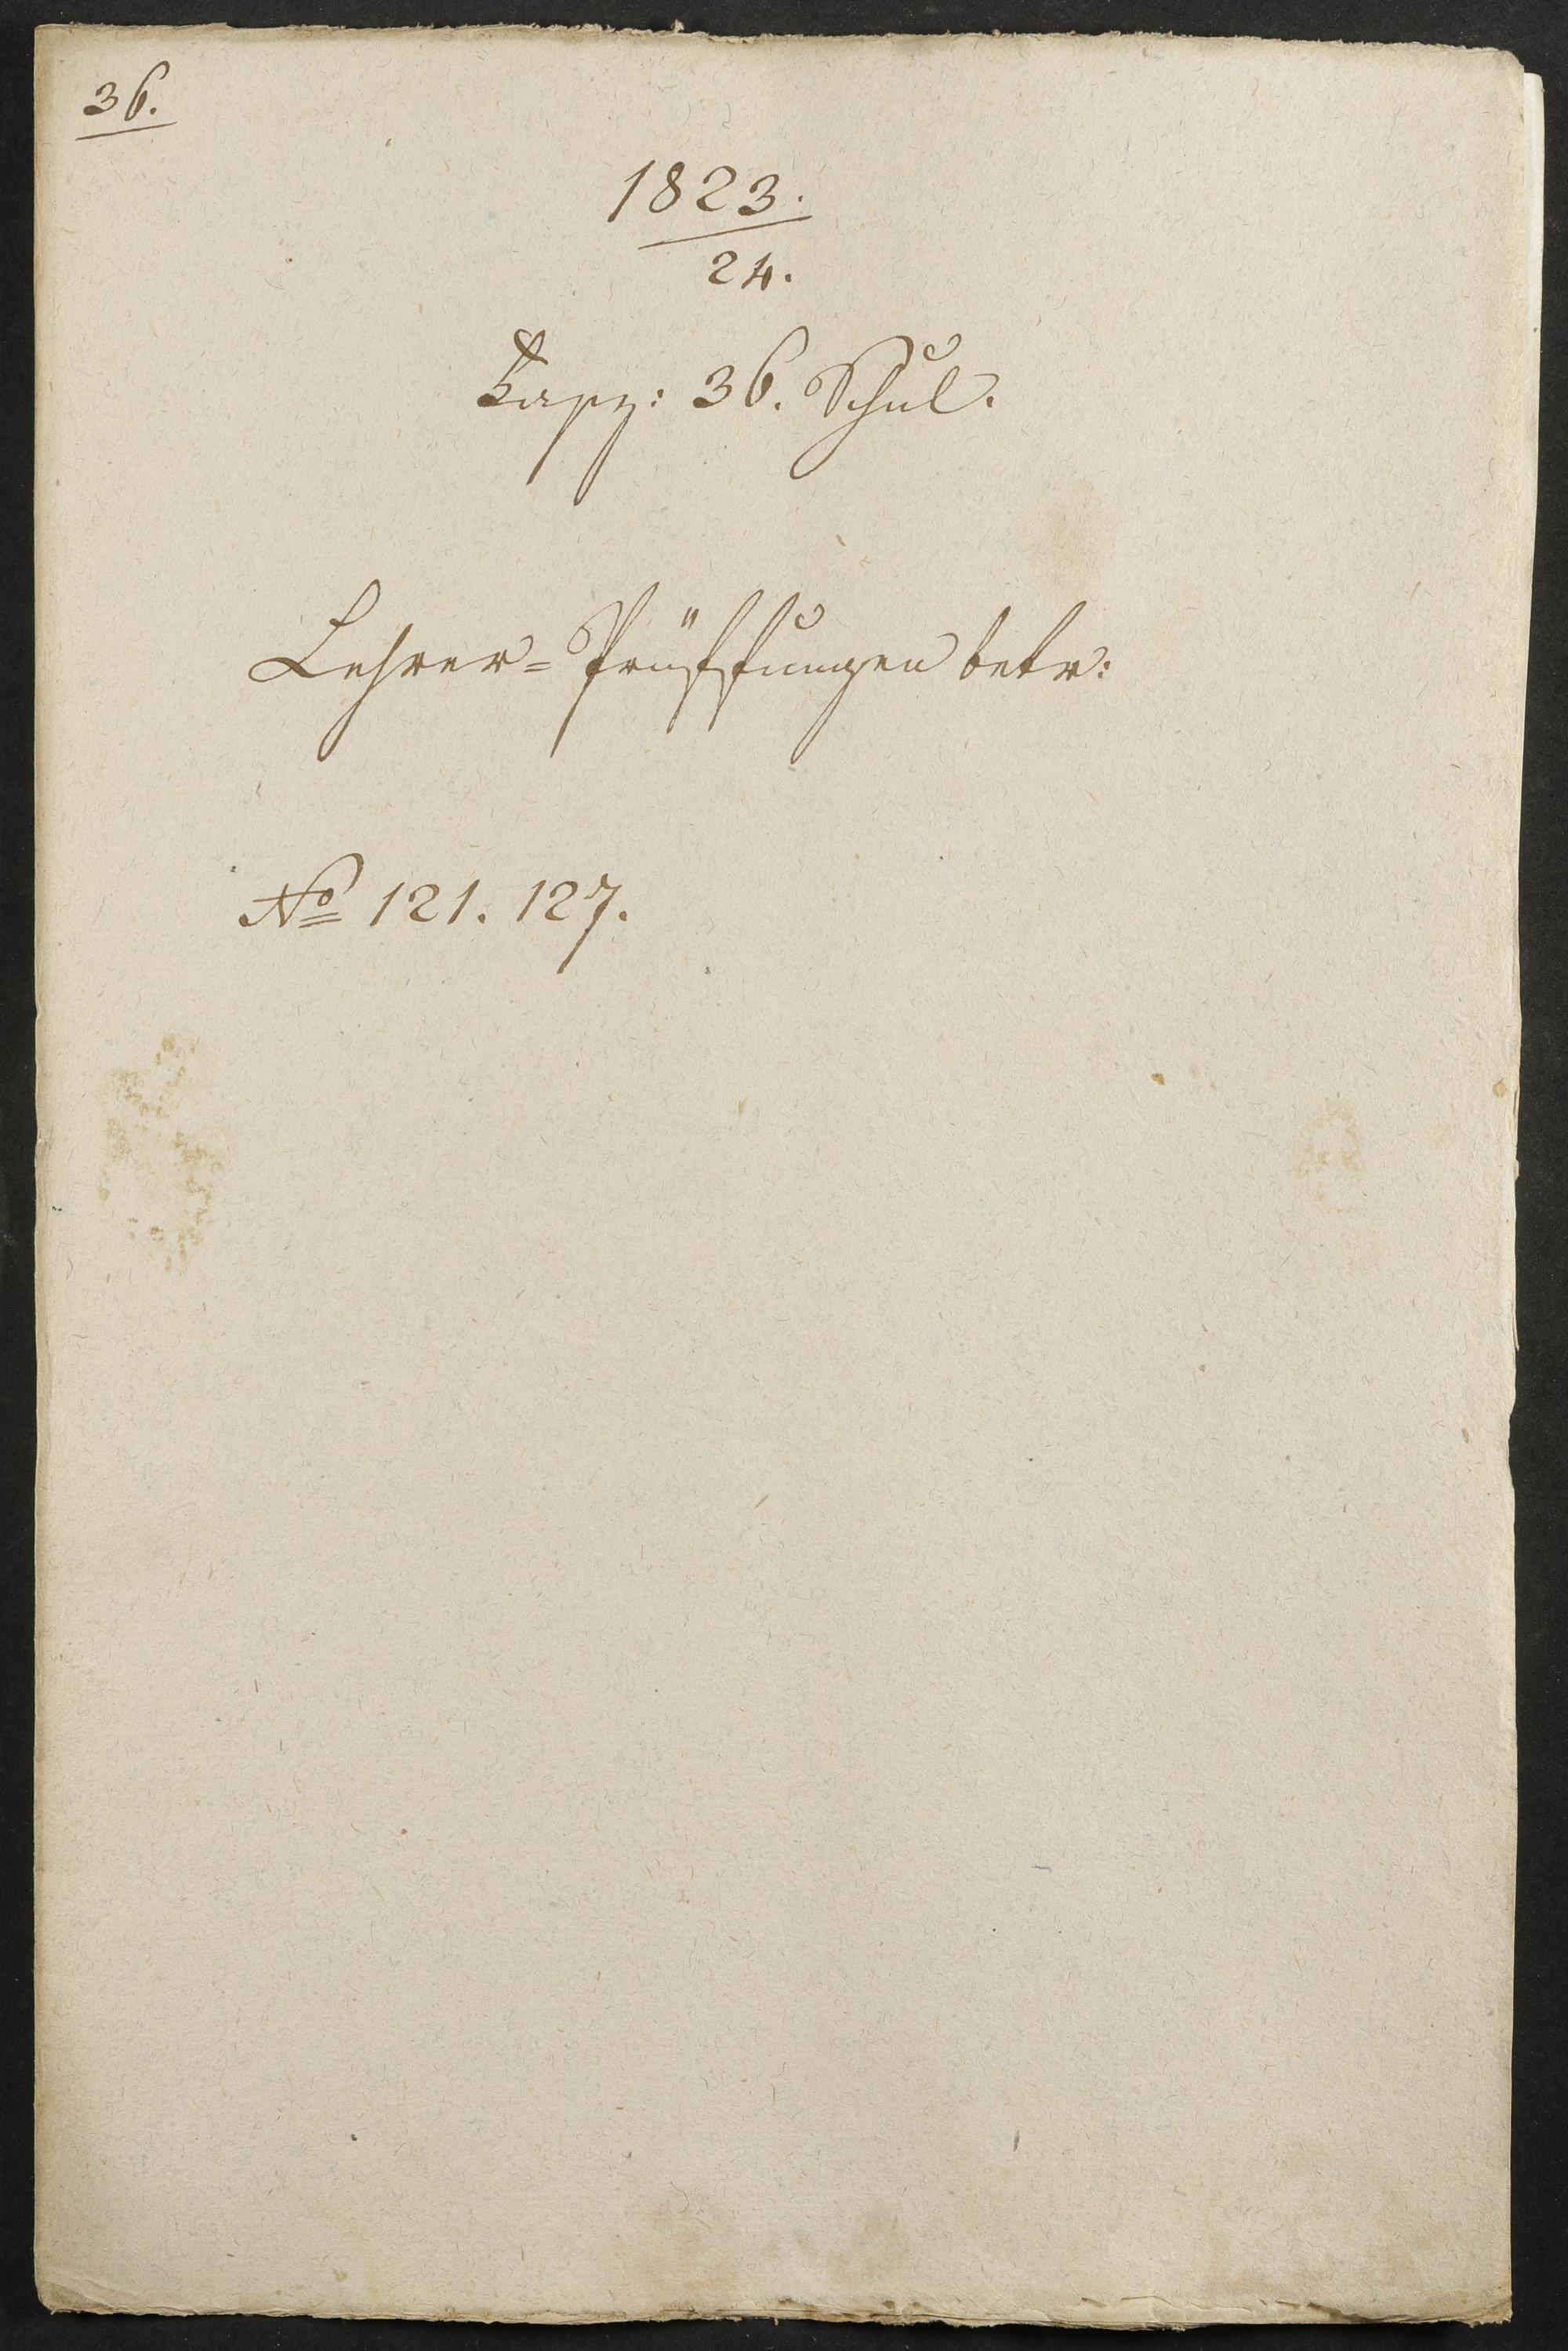 36.
1823.
24.
Fasz: 36. Schul.
Lehrer= Prüffungen betr:
No 121. 127.